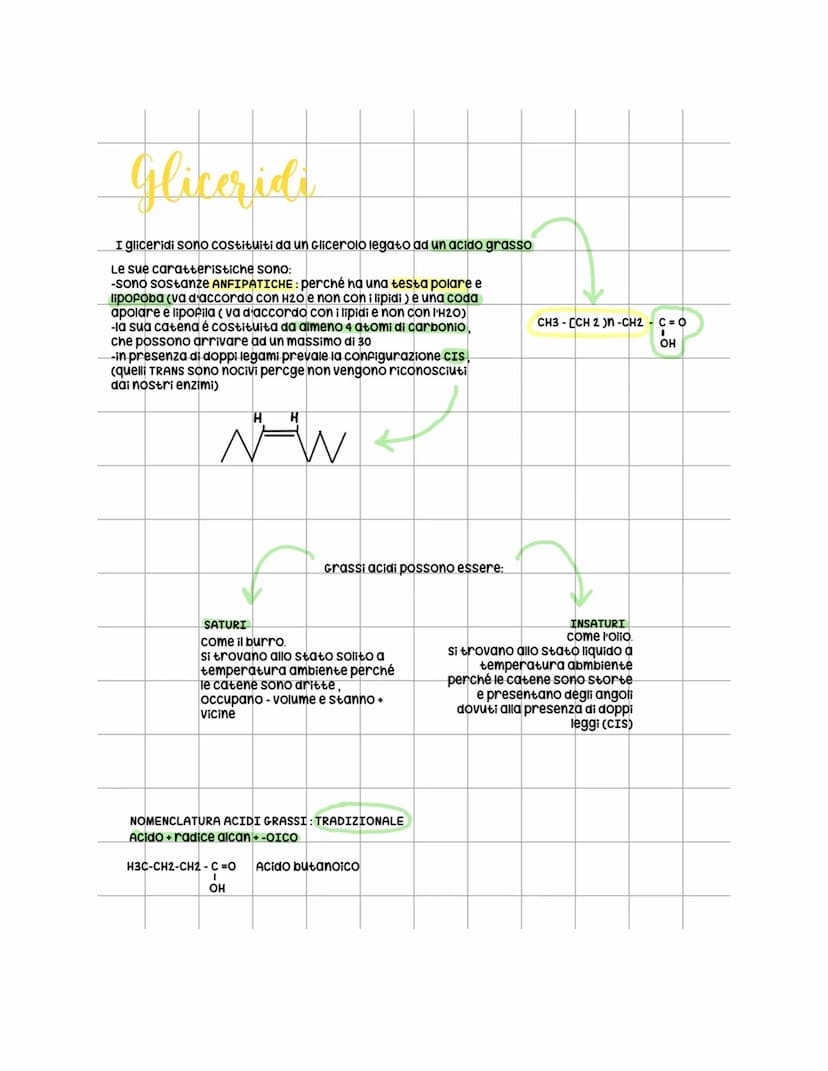 Gliceridi
I gliceridi sono costituiti da un Glicerolo legato ad un acido grasso
Le sue caratteristiche sono:
-sono sostanze ANFIPATICHE : perché ha una testa polare e
lipofoba (va d'accordo con H2O e non con i lipidi ) e una coda
apolare e lipofila ( va d'accordo con i lipidi e non con l'H2O)
-la sua catena é costituita da almeno 4 atomi di carbonio ,
che possono arrivare ad un massimo di 30
-in presenza di doppi legami prevale la configurazione CIS ,
(quelli TRANS sono nocivi percge non vengono riconosciuti
dai nostri enzimi)
CH3 - [CH 2 ]n -CH2 - C = O
OH
H H
Grassi acidi possono essere:
SATURI
come il burro.
si trovano allo stato solito a
temperatura ambiente perché
le catene sono dritte ,
occupano - volume e stanno +
vicine
INSATURI
come l'olio.
si trovano allo stato liquido a
temperatura abmbiente
perché le catene sono storte
e presentano degli angoli
dovuti alla presenza di doppi
leggi (CIS)
NOMENCLATURA ACIDI GRASSI : TRADIZIONALE
Acido + radice alcan + -OICO
H3C-CH2-CH2 - C =O Acido butanoico
OH